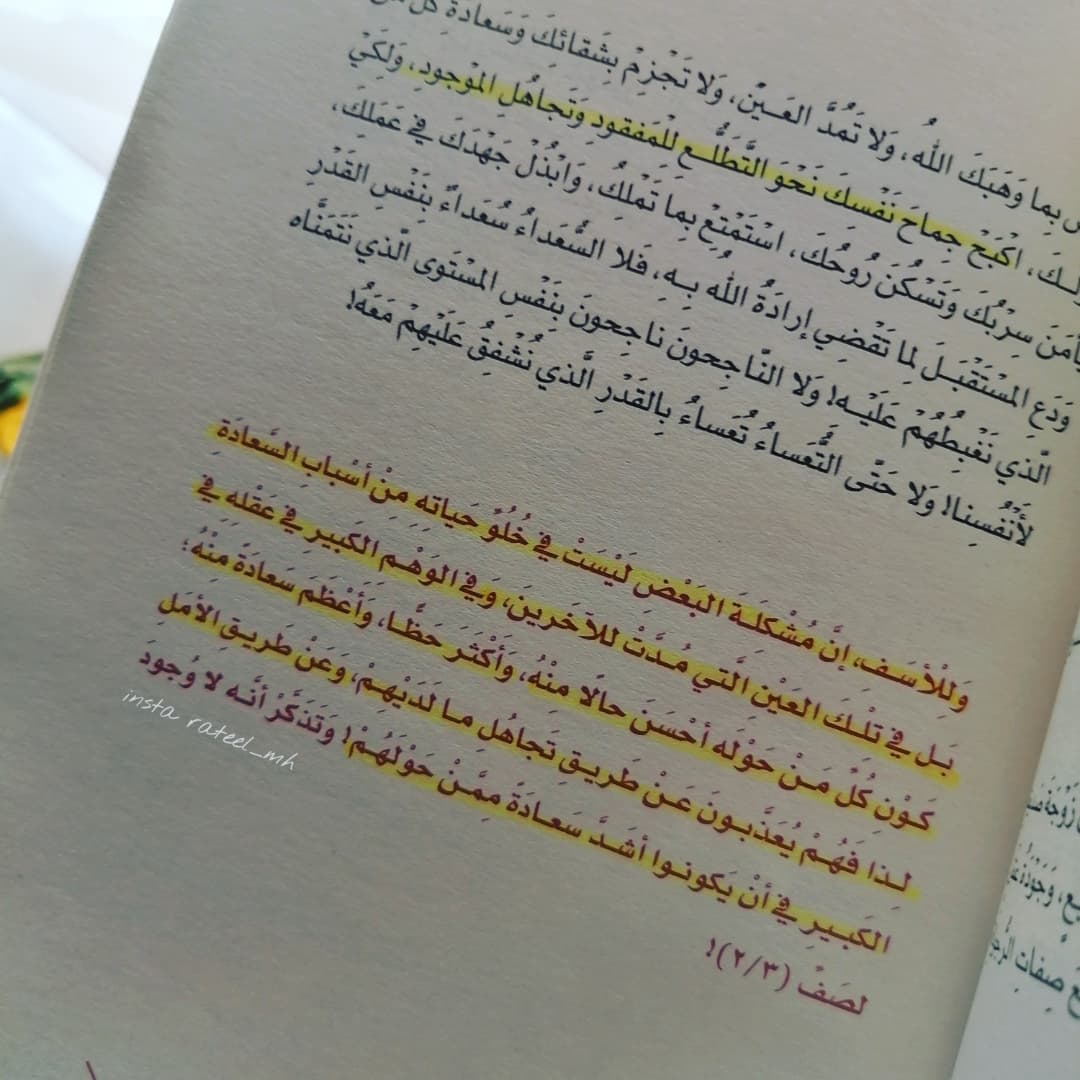 بِما وَهَبَكَ اللهُ، وَلا تَمُدَّ العَـيْنَ، وَلا تَجْزِمْ بِشَقائِكَ وَسَعادَةِ كُلِّ
اكْبَحْ جِماحَ نَفْسِكَ نَحْوَ التَّطَلُّـعِ لِلْمَفقودِ وَتَجاهُلِ المَوْجودِ، وَلِكَيْ
يَأمَنَ سِرْبُكَ وَتَسْكُنَ رُوحُكَ، اسْتَمْتِعْ بِما تَملِكُ، وَابْذُلْ جَهْدَكَ في عَمَلِكَ،
وَدَعِ المسْتَقْبَـلَ لِما تَقْضِي إرادَةُ اللهِ بِـهِ، فَلا السُّعَداءُ سُعَداءٌ بِنَفْسِ القَدْرِ
الَّذي نَغْبِطُهُمْ عَلَيْـهِ! وَلا النَّاجِحونَ ناجِحونَ بِنَفْسِ المسْتَوى الَّذي نَتَمَنَّاه
لأَنْفُسِنا! وَلا حَتَّى التُّعَساءُ تُعَساءُ بِالقَدْرِ الَّذي نُشْفِقُ عَلَيْهِمْ مَعَهُ!
وَلِلْأسَـفِ، إنَّ مُشْكلَـةَ البَعْضِ لَيْسَتْ في خُلُوِّ حَياتِهِ مِنْ أسْبابِ السَّعادَةِ
بَـل في تلْـكَ العَيْنِ الَّتي مُـدَّتْ للآخَرين، وَفي الوَهْـمِ الكَبيرِ في عَقْلِهِ في
كَـوْنِ كُلِّ مَـنْ حَوْلَهُ أحْسَنَ حالًا منْهُ، وَأكْثَـرَ حَظًّـا، وَأعْظَمَ سَعادَةً مِنْهُ؛
لـذا فَهُـمْ يُعَذَّبـونَ عَـنْ طَريـقِ تَجاهُلِ مـا لَدَيْهِـمْ، وَعَنْ طَريـقِ الأمَلِ
الكَبـيرِ في أنْ يَكونـوا أشَـدَّ سَعـادَةً ممَّـنْ حَوْلَهُمْ! وَتَذكَّرْ أنَّـه لا وُجودَ
لصَفْ (٢/٣)!
insta rateel_mh
زَوْجَةً
وَجَوْدَةً
صِفاتِ